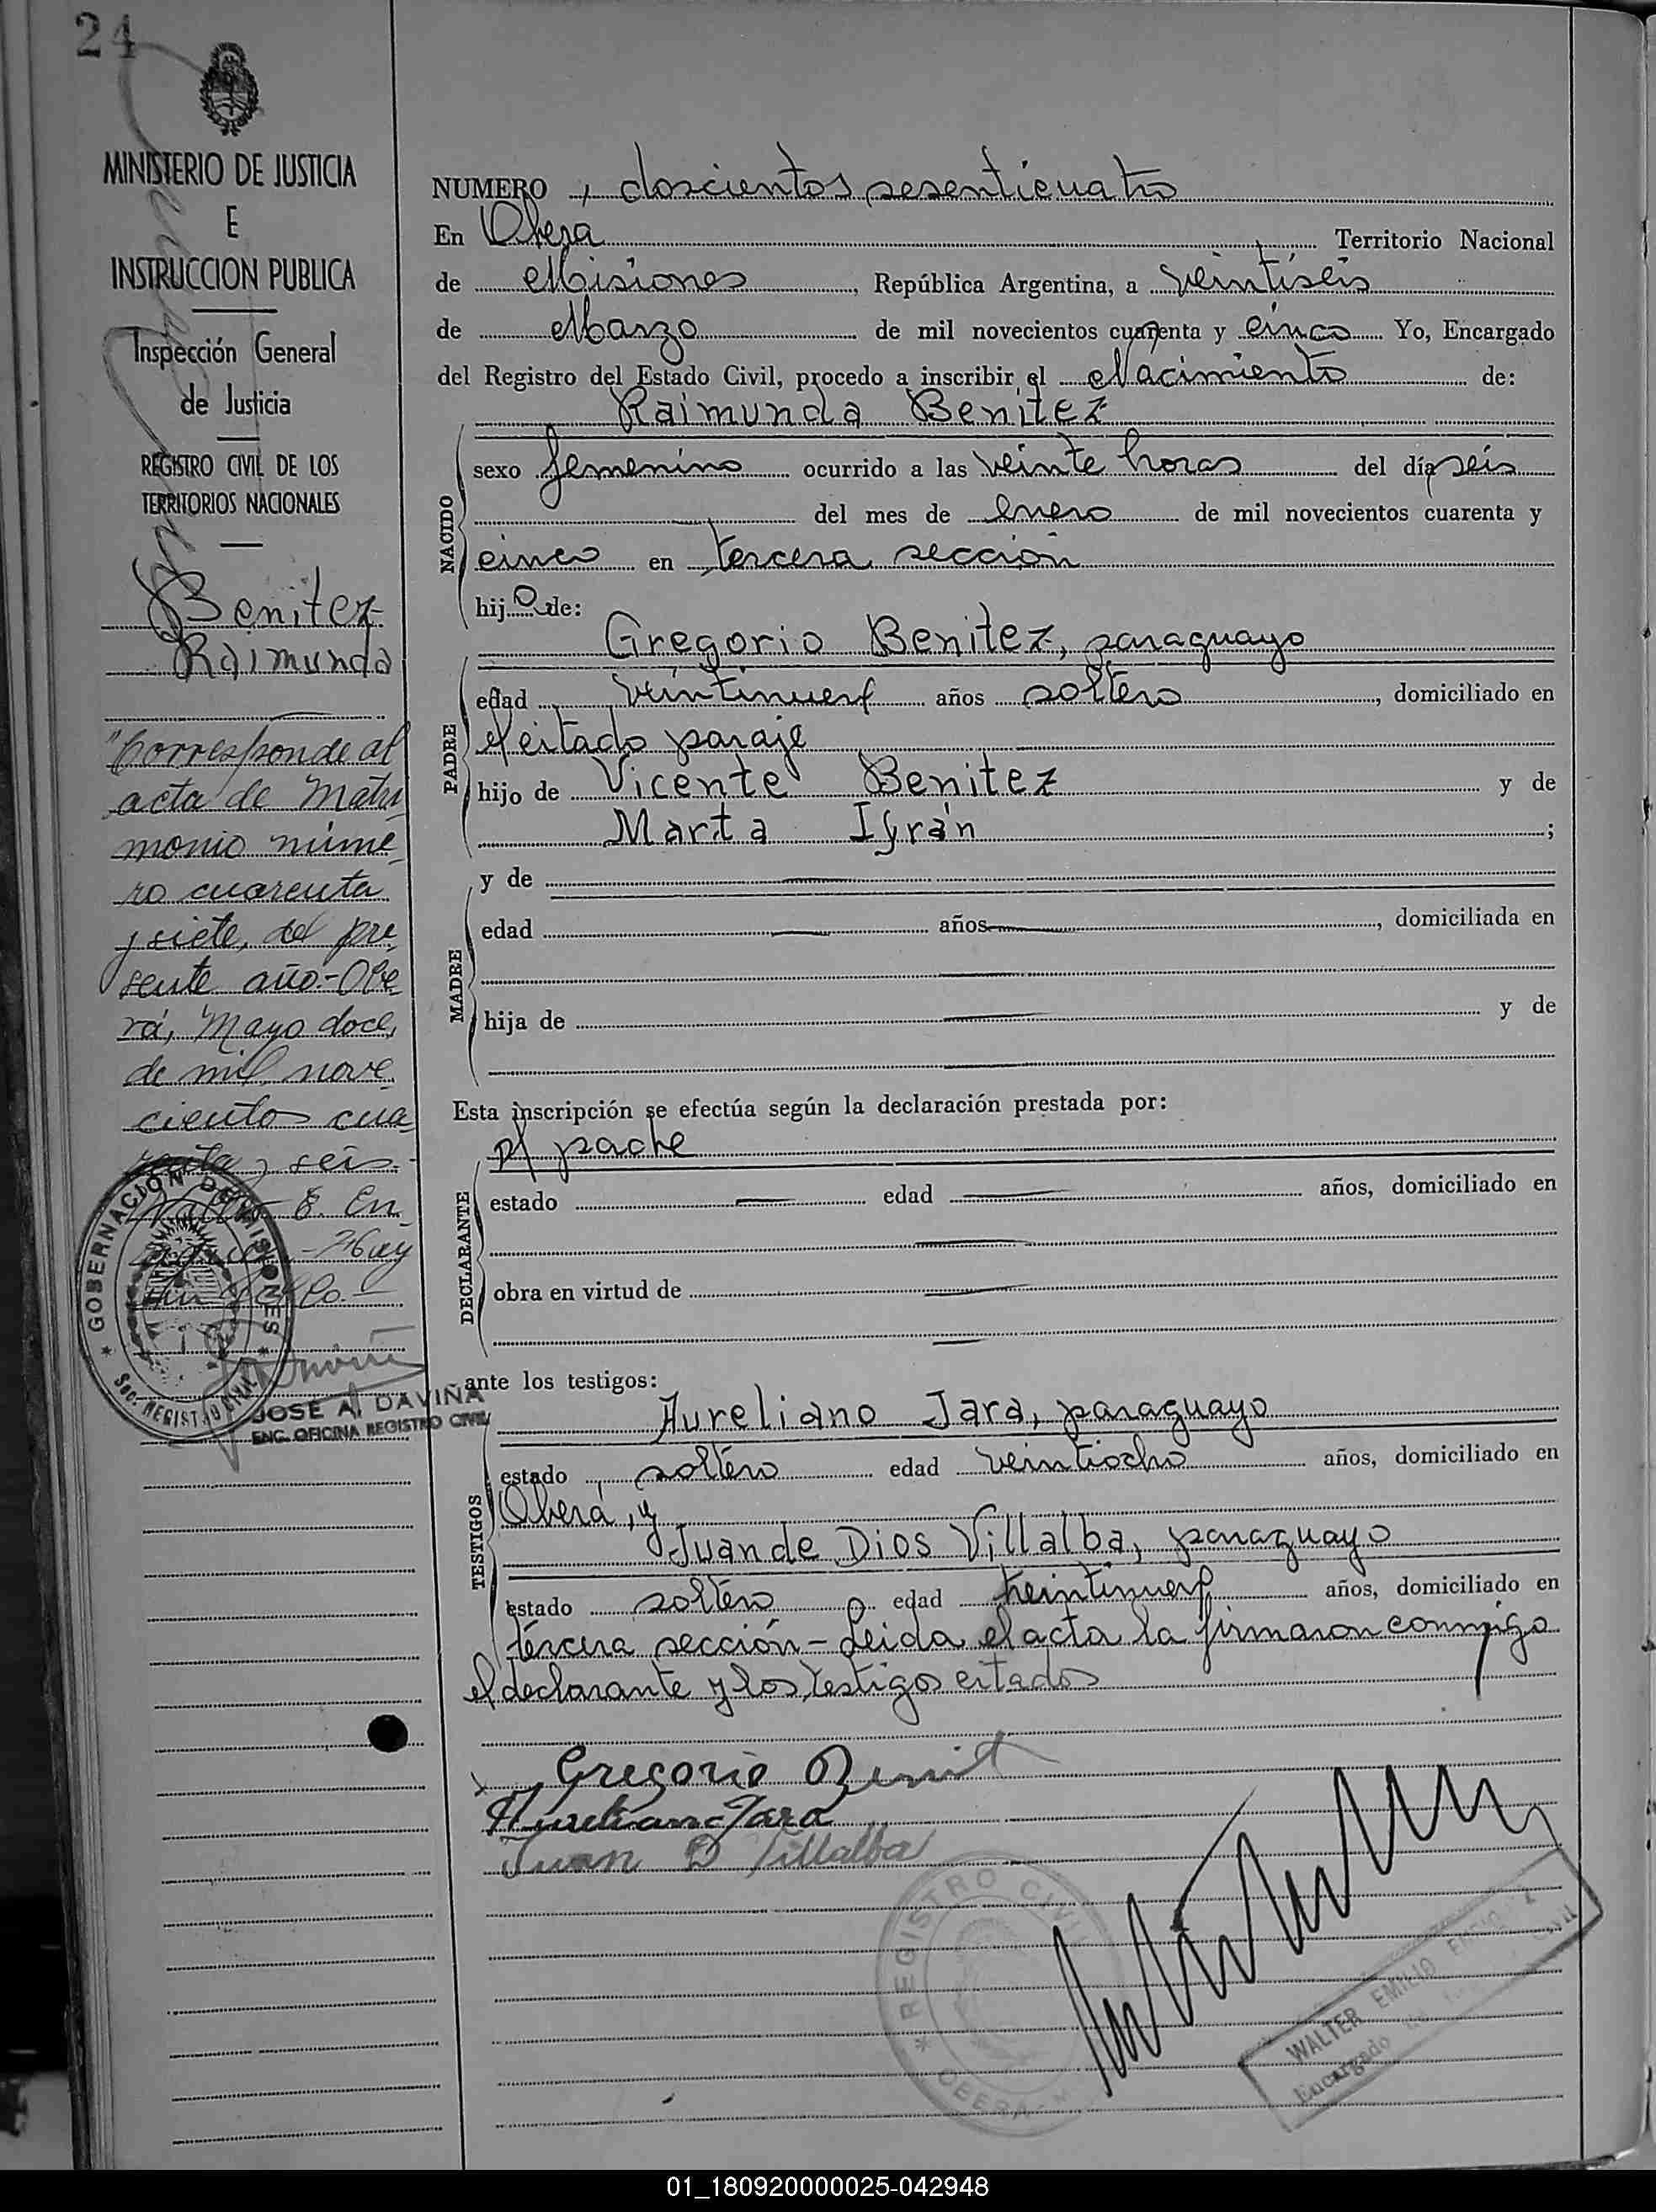 24
MINISTERIO DE JUSTICIA
E
INSTRUCCION PUBLICA
Inspección General
de Justicia
REGISTRO CIVIL DE LOS
TERRITORIOS NACIONALES
Benitez
Raimunda
"Corresponde al
acta de Matri
monio núme
ro cuarenta
y siete, del pre
sente año.- Obe
rá, Mayo doce,
de mil nove
cientos cua
renta y seis.-
Walter E. En
Hay
un sello.-
GOBERNACION DE MISIONES
Sec. REGISTRO CIVIL
JOSE A. DAVIÑA
ENC. OFICINA REGISTRO CIVIL
NUMERO, doscientos sesenticuatro
En Obera Territorio Nacional
de Misiones, República Argentina, a veintiseis
de Marzo de mil novecientos cuarenta y cinco Yo, Encargado
del Registro del Estado Civil, procedo a inscribir el Nacimiento de:
Raimunda Benitez
NACIDO
sexo femenino ocurrido a las veinte horas del día seis
del mes de enero de mil novecientos cuarenta y
cinco en tercera sección
hijo de:
Gregorio Benitez, paraguayo
PADRE
edad veintinueve años soltero, domiciliado en
el citado paraje
hijo de Vicente Benitez y de
Marta;
y de
MADRE
edad años, domiciliada en
hija de y de
Esta inscripción se efectúa según la declaración prestada por:
el padre
DECLARANTE
estado edad años, domiciliado en
obra en virtud de
ante los testigos:
Aureliano Jara, paraguayo
TESTIGOS
estado soltero edad veintiocho años, domiciliado en
Obera, y
Juan de Dios Villalba, paraguayo
estado soltero edad treintinueve años, domiciliado en
tercera sección - Leida el acta la firmaron conmigo
el declarante y los testigos citados
Gregorio Benit
Aureliano Jara
Juan D Villalba
REGISTRO CIVIL
OBERA
WALTER EMILIO
Encargado Civil
01_180920000025-042948